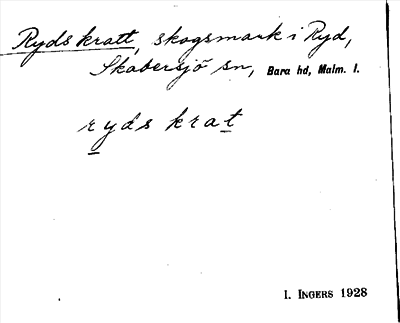 Ryds kratt, skogsmark i Ryd,
Skabersjö sn, Bara hd, Malm. l.
ryds krat
I. INGERS 1928